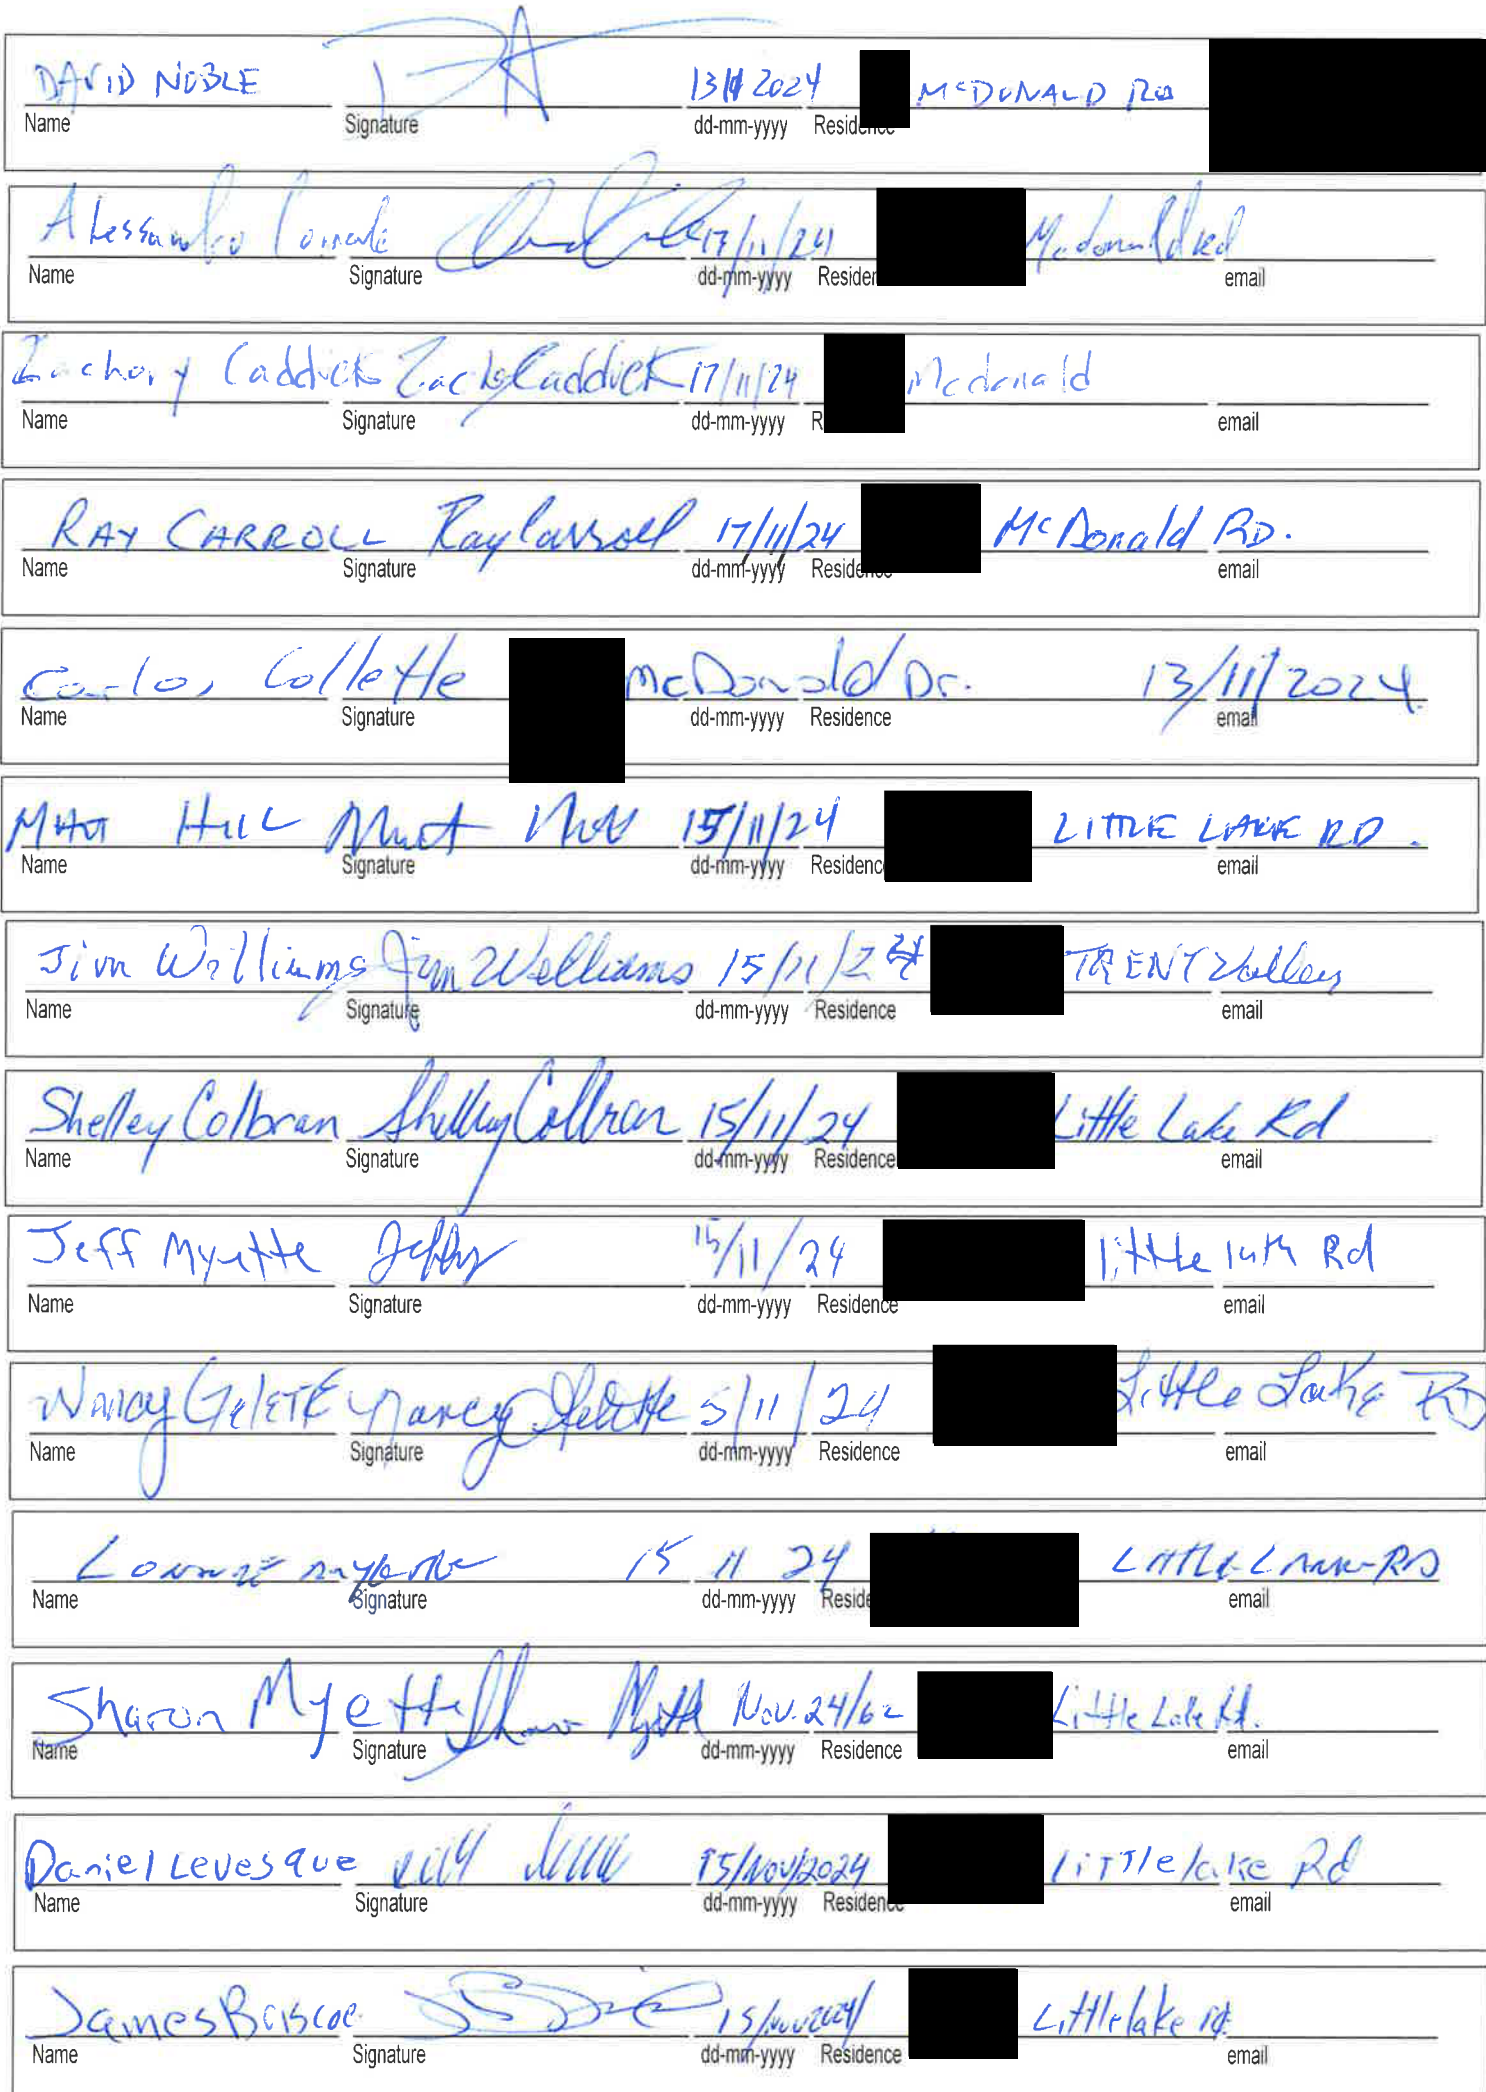 DAVID NOBLE 13 11 2024 McDONALD RD
Name Signature dd-mm-yyyy Residence
Alessandro 17/11/24 Mcdonald rd
Name Signature dd-mm-yyyy Residen email
Zachary Caddick Zack Caddick 17/11/24 Mcdonald
Name Signature dd-mm-yyyy R email
RAY CARROLL Ray Carroll 17/11/24 McDonald RD.
Name Signature dd-mm-yyyy Residence email
Carlos Collette McDonald Dr. 13/11/2024
Name Signature dd-mm-yyyy Residence email
MATT HILL Matt Hill 15/11/24 LITTLE LAKE RD.
Name Signature dd-mm-yyyy Residenc email
Jim Williams Jim Williams 15/11/24 TRENT Valley
Name Signature dd-mm-yyyy Residence email
Shelley Colbran Shelley Colbran 15/11/24 Little Lake Rd
Name Signature dd-mm-yyyy Residence email
Jeff Myette 15/11/24 little lake Rd
Name Signature dd-mm-yyyy Residence email
Nancy Nancy 5/11/24 Little Lake RD
Name Signature dd-mm-yyyy Residence email
15 11 24 LITTLE LAKE RD
Name Signature dd-mm-yyyy Reside email
Sharon Myette Sharon Myette Nov. 24/62 Little Lake Rd.
Name Signature dd-mm-yyyy Residence email
Daniel Levesque 15/Nov/2024 Little lake Rd
Name Signature dd-mm-yyyy Residence email
James Briscoe 15/nov/2024 Littlelake rd
Name Signature dd-mm-yyyy Residence email